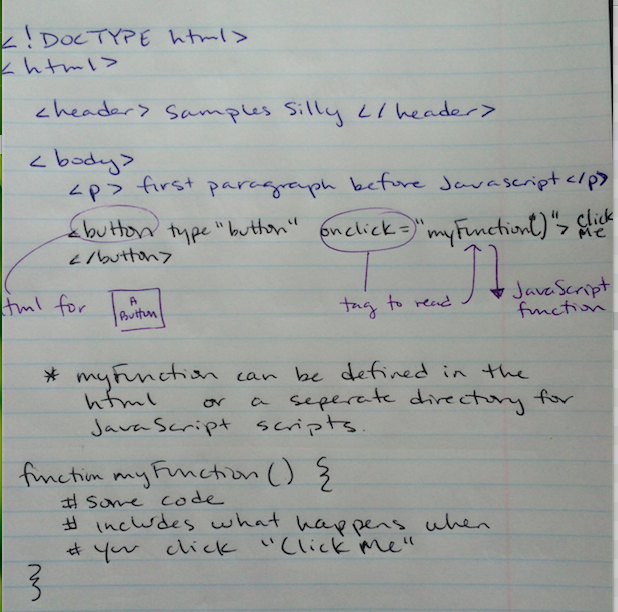 <!DOCTYPE html>
<html>
<header> Samples Silly </header>
<body>
<p> first paragraph before Javascript </p>
<button type "button" onclick= "myFunction()"> Click Me
</button>
tml for A Button
tag to read
JavaScript function
* myFunction can be defined in the
html or a seperate directory for
JavaScript scripts.
function myFunction () {
# some code
# includes what happens when
# you click "Click Me"
}